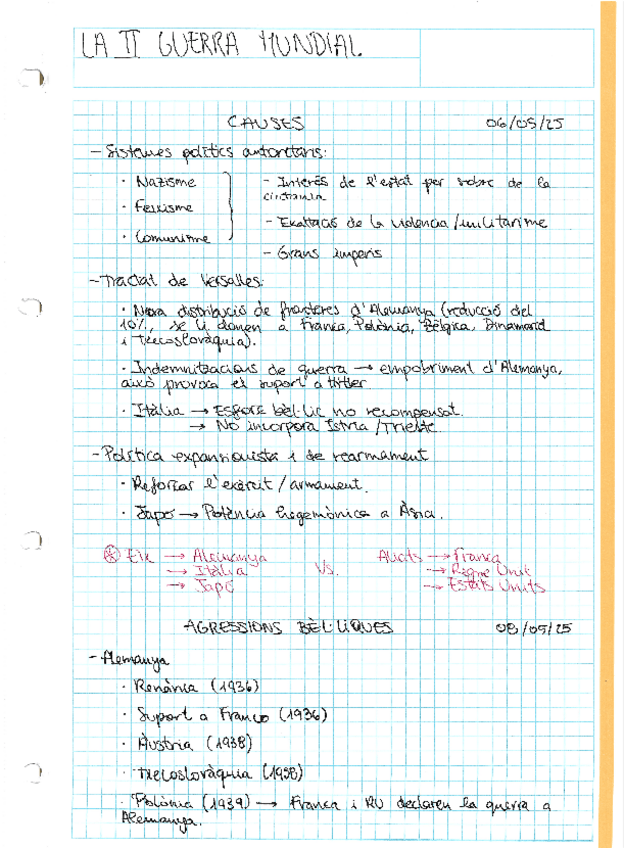 LA II GUERRA MUNDIAL
CAUSES 06/05/25
- Sistemes polítics autoritaris:
· Nazisme
· Feixisme
· Comunisme
- Interès de l'estat per sobre de la
ciutadania
- Exaltació de la violència/militarisme
- Grans imperis
- Tractat de Versalles:
· Nova distribució de fronteres d'Alemanya (reducció del
10%, se li donen a França, Polònia, Bèlgica, Dinamarca
i Txecoslovàquia).
· Indemnitzacions de guerra → empobriment d'Alemanya,
això provoca el suport a Hitler
· Itàlia → Esforç bèl·lic no recompensat.
→ No incorpora Ístria/Trieste.
- Política expansionista i de rearmament
· Reforçar l'exèrcit/armament.
· Japó → Potència hegemònica a Àsia.
* Eix → Alemanya
→ Itàlia
→ Japó
Vs.
Aliats → França
→ Regne Unit
→ Estats Units
AGRESSIONS BÈL·LIQUES 08/05/25
- Alemanya
· Renània (1936)
· Suport a Franco (1936)
· Àustria (1938)
· Txecoslovàquia (1938)
· Polònia (1939) → França i RU declaren la guerra a
Alemanya.